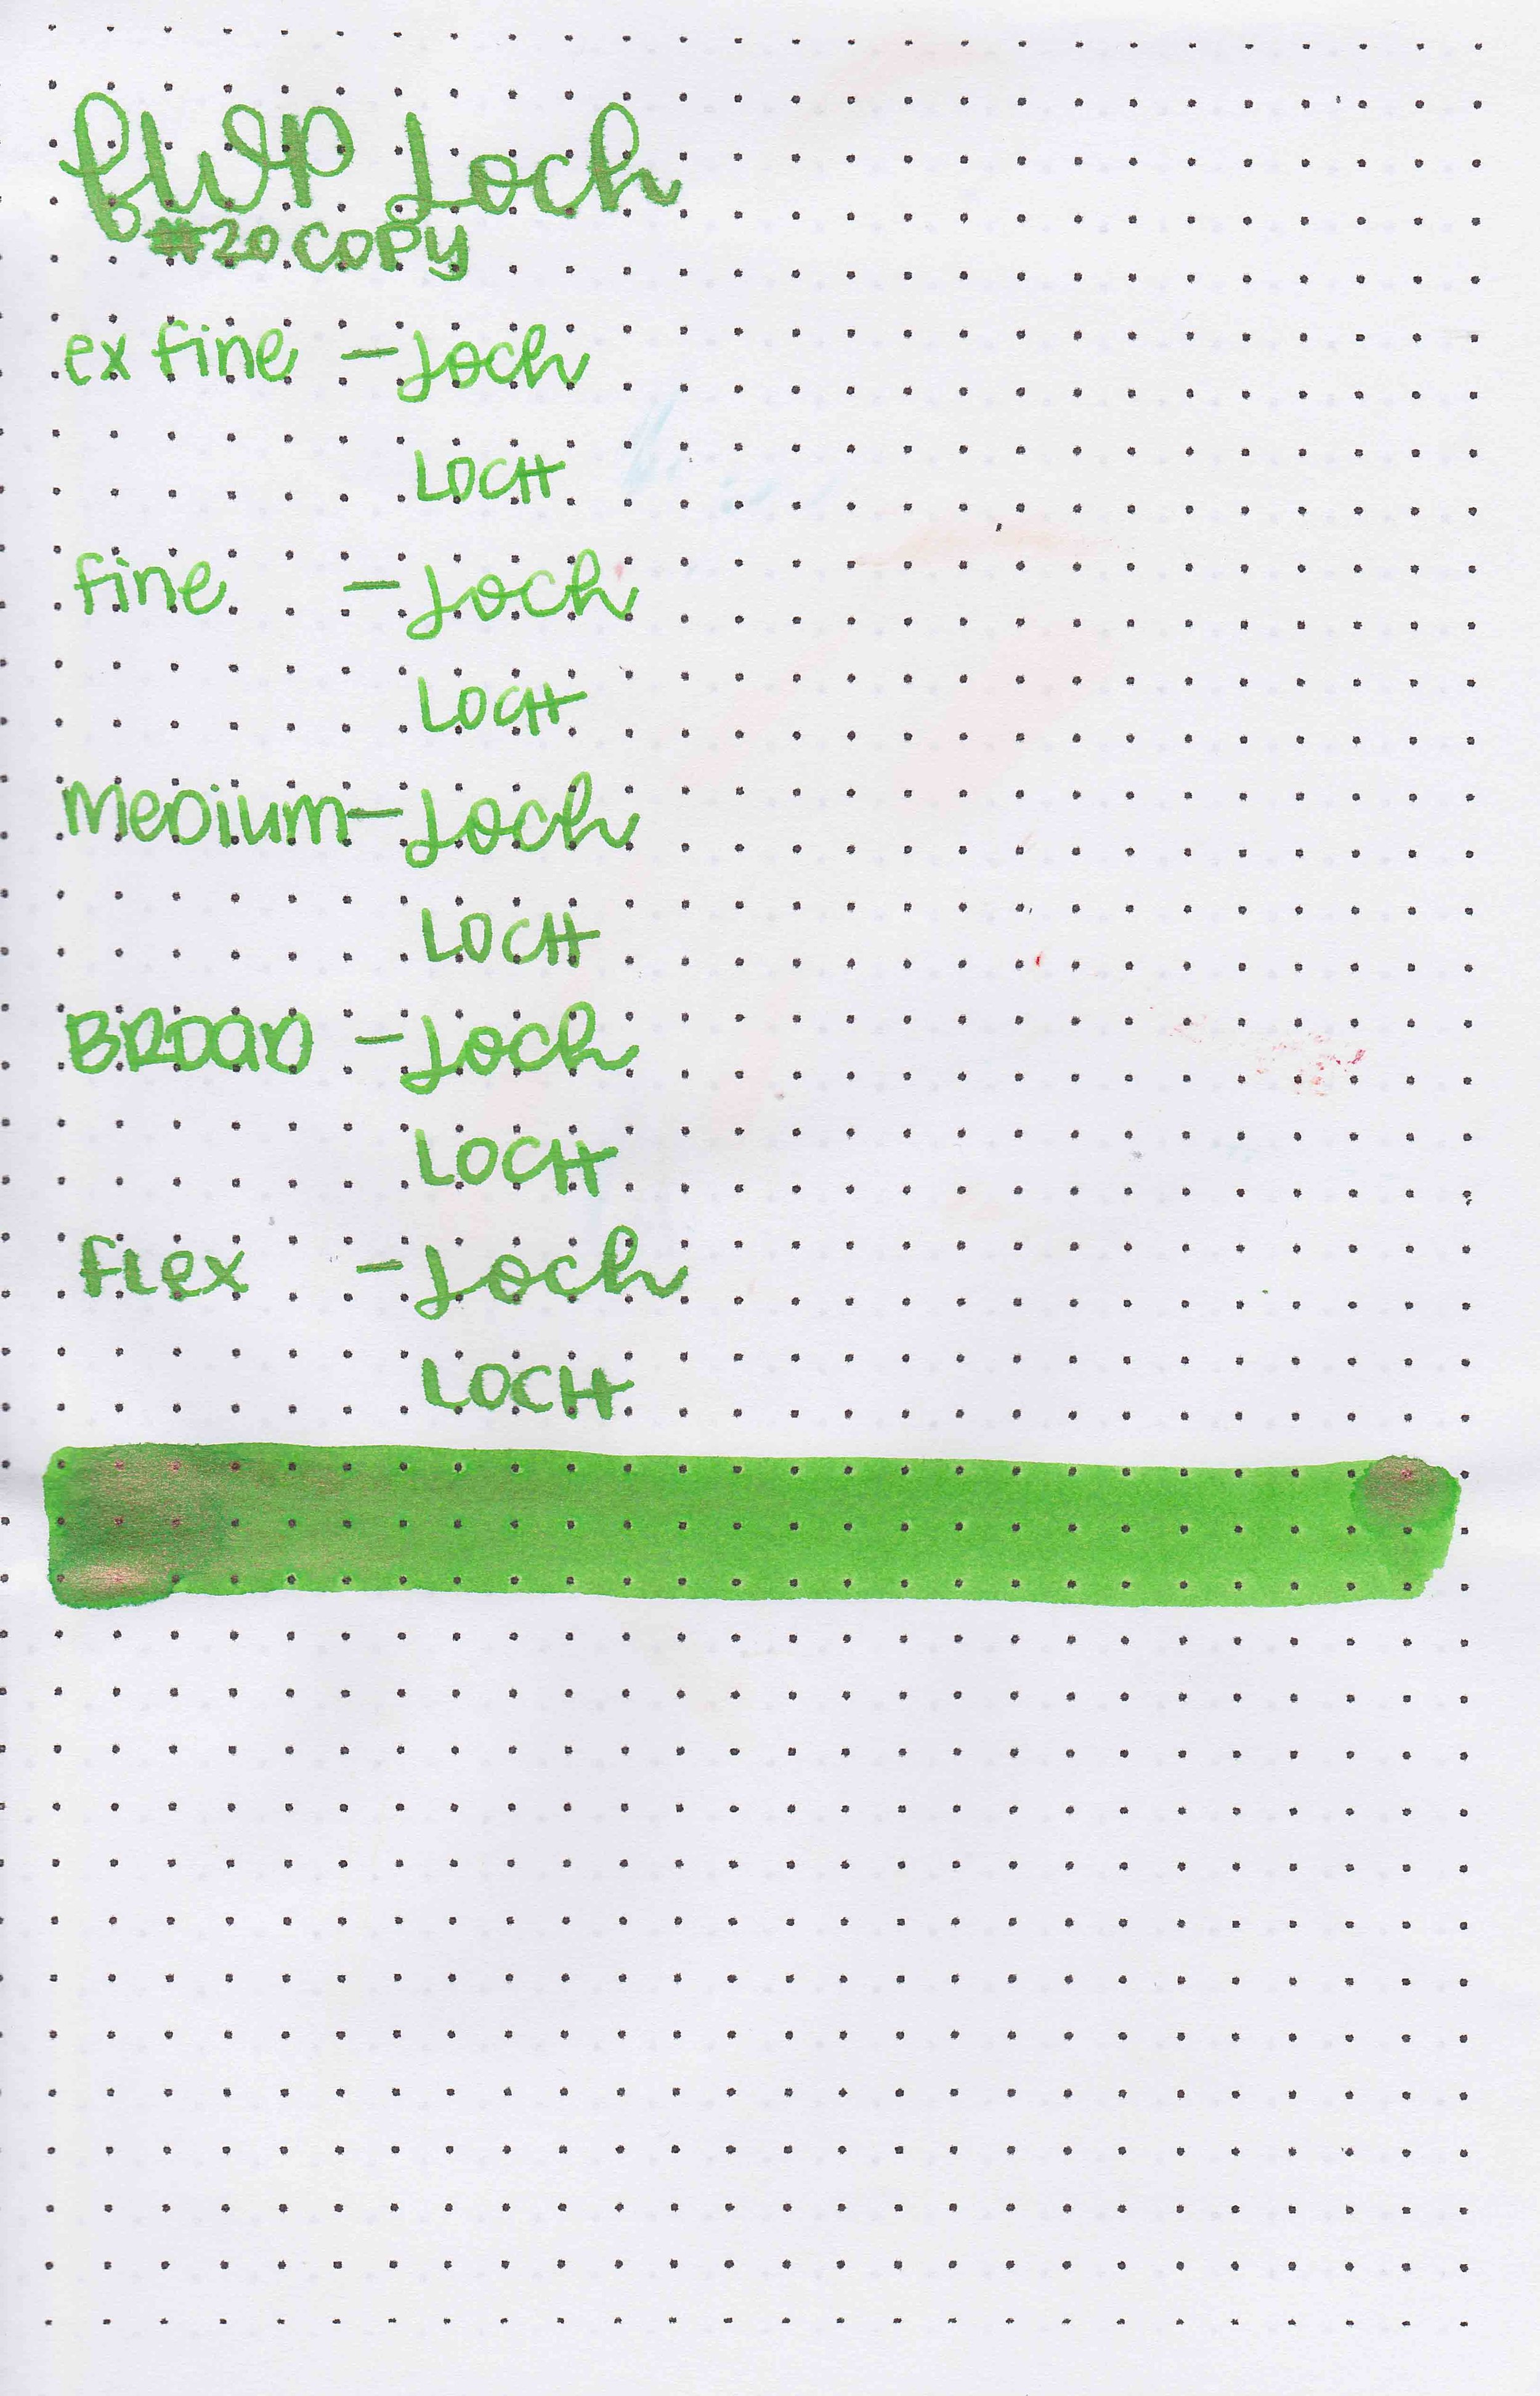 FWP Loch
#20 COPY
ex fine - Loch
LOCH
fine - Loch
LOCH
MeDium - Loch
LOCH
BROAD - Loch
LOCH
FLex - Loch
LOCH